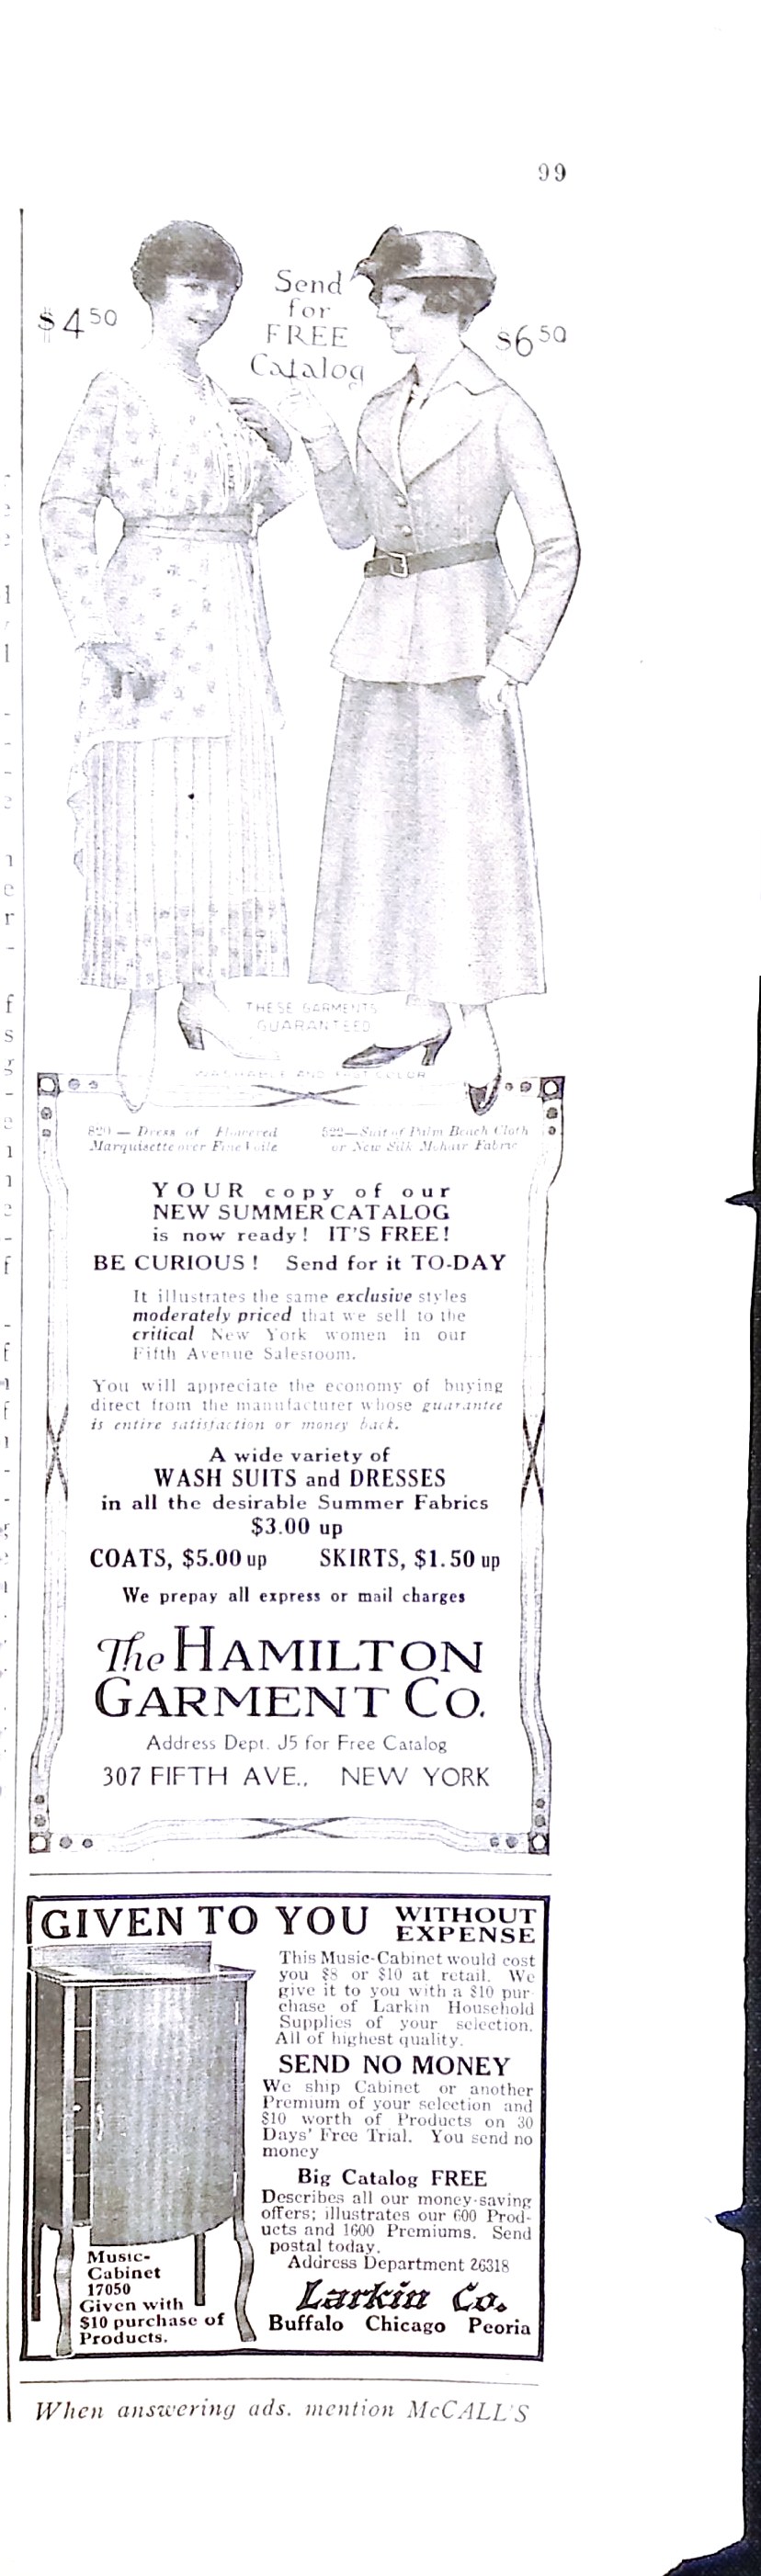 99
$4 50
Send
for
FREE
Catalog
$6 50
THESE GARMENTS
GUARANTEED
WASHABLE AND FAST COLOR
820 — Dress of Flowered
Marquisette over Fine Voile
522—Suit of Palm Beach Cloth
or New Silk Mohair Fabric
YOUR copy of our
NEW SUMMER CATALOG
is now ready! IT'S FREE!
BE CURIOUS! Send for it TO-DAY
It illustrates the same exclusive styles
moderately priced that we sell to the
critical New York women in our
Fifth Avenue Salesroom.
You will appreciate the economy of buying
direct from the manufacturer whose guarantee
is entire satisfaction or money back.
A wide variety of
WASH SUITS and DRESSES
in all the desirable Summer Fabrics
$3.00 up
COATS, $5.00 up SKIRTS, $1.50 up
We prepay all express or mail charges
The HAMILTON
GARMENT CO.
Address Dept. J5 for Free Catalog
307 FIFTH AVE., NEW YORK
GIVEN TO YOU WITHOUT
EXPENSE
This Music-Cabinet would cost
you $8 or $10 at retail. We
give it to you with a $10 pur-
chase of Larkin Household
Supplies of your selection.
All of highest quality.
SEND NO MONEY
We ship Cabinet or another
Premium of your selection and
$10 worth of Products on 30
Days' Free Trial. You send no
money
Big Catalog FREE
Describes all our money-saving
offers; illustrates our 600 Prod-
ucts and 1600 Premiums. Send
postal today.
Address Department 26318
Larkin Co.
Buffalo Chicago Peoria
Music-
Cabinet
17050
Given with
$10 purchase of
Products.
When answering ads. mention McCALL'S